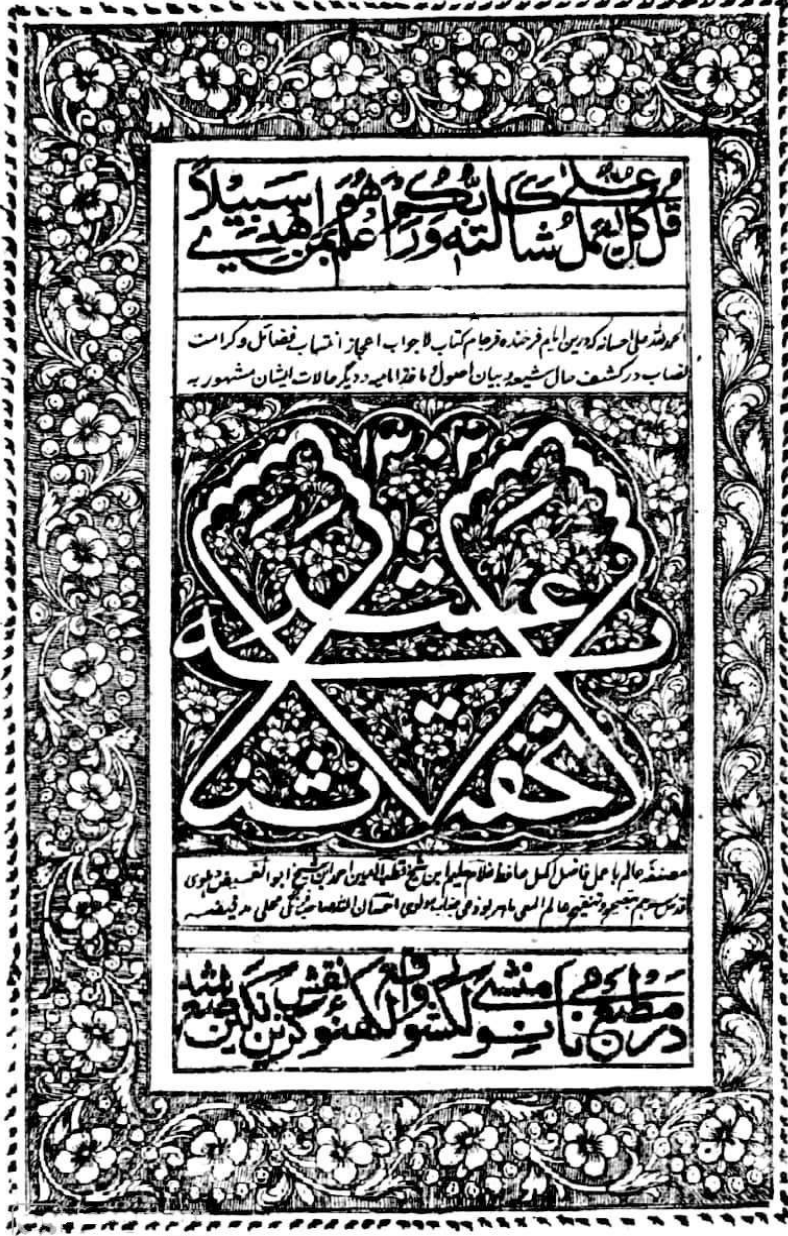 قل كل يعمل على شاكلته وربكم اعلم بمن هو اهدى سبيلاً
الحمد لله على احسانه که درین ایام فرخنده فرجام کتاب لاجواب اعجاز انتساب فضائل و کرامت
نصاب در کشف حال شیعه و بیان اصول و ماخذ امامیه و دیگر حالات ایشان مشهور به
۱۳۰۲
تحفه اثنا عشریه
مصنفه عالم باعمل فاضل اکمل حافظ غلام حلیم ابن شیخ قطب الدین احمد ابن شیخ ابو الفیض دهلوی
قدس سرهم بتصحیح و تنقیح عالم المعی ماهر لوذعی جناب مولوی احسان الله صاحب فرنگی محلی
در مطبع نامی منشی نولکشور واقع لکهنؤ نقش گزین نگین طبع شد